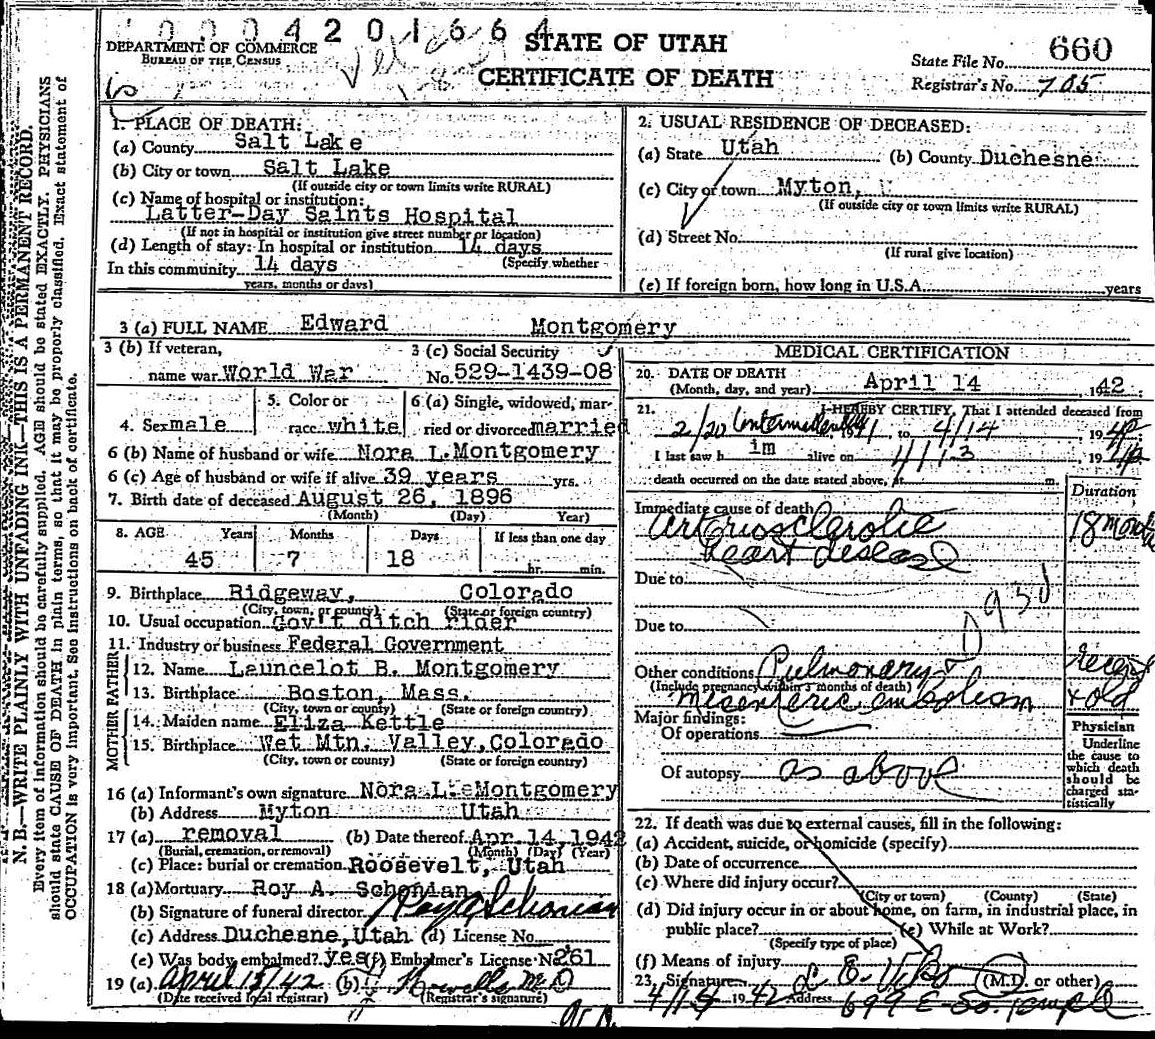 0 0 0 4 2 0 1 6 6 4
DEPARTMENT OF COMMERCE
BUREAU OF THE CENSUS
STATE OF UTAH
CERTIFICATE OF DEATH
State File No. 660
Registrar's No. 705
N. B.—WRITE PLAINLY WITH UNFADING INK—THIS IS A PERMANENT RECORD.
Every item of information should be carefully supplied. AGE should be stated EXACTLY. PHYSICIANS
should state CAUSE OF DEATH in plain terms, so that it may be properly classified. Exact statement of
OCCUPATION is very important. See instructions on back of certificate.
1. PLACE OF DEATH:
(a) County Salt Lake
(b) City or town Salt Lake
(If outside city or town limits write RURAL)
(c) Name of hospital or institution:
Latter-Day Saints Hospital
(If not in hospital or institution give street number or location)
(d) Length of stay: In hospital or institution 14 days
(Specify whether
In this community 14 days
years, months or days)
2. USUAL RESIDENCE OF DECEASED:
(a) State Utah (b) County Duchesne
(c) City or town Myton,
(If outside city or town limits write RURAL)
(d) Street No.
(If rural give location)
(e) If foreign born, how long in U.S.A. years
3 (a) FULL NAME Edward Montgomery
3 (b) If veteran,
name war World War
3 (c) Social Security
No. 529-1439-08
4. Sex male
5. Color or
race white
6 (a) Single, widowed, mar-
ried or divorced married
6 (b) Name of husband or wife Nora L. Montgomery
6 (c) Age of husband or wife if alive 39 years yrs.
7. Birth date of deceased August 26, 1896
(Month) (Day) Year)
8. AGE Years Months Days If less than one day
45 7 18 hr. min.
9. Birthplace Ridgeway, Colorado
(City, town, or county) (State or foreign country)
10. Usual occupation Gov't ditch rider
11. Industry or business Federal Government
FATHER
12. Name Launcelot B. Montgomery
13. Birthplace Boston, Mass.
(City, town or county) (State or foreign country)
MOTHER
14. Maiden name Eliza Kettle
15. Birthplace Wet Mtn. Valley, Colorado
(City, town or county) (State or foreign country)
16 (a) Informant's own signature Nora L. Montgomery
(b) Address Myton Utah
17 (a) removal (b) Date thereof Apr. 14, 1942
(Burial, cremation, or removal) (Month) (Day) (Year)
(c) Place: burial or cremation Roosevelt, Utah
18 (a) Mortuary Roy A. Schonian
(b) Signature of funeral director Roy A Schonian
(c) Address Duchesne, Utah (d) License No.
(e) Was body embalmed? yes (f) Embalmer's License No. 261
19 (a) April 15/42 (b) Howells M.D
(Date received local registrar) (Registrar's signature)
MEDICAL CERTIFICATION
20. DATE OF DEATH
(Month, day, and year) April 14 1942
21. I HEREBY CERTIFY, That I attended deceased from
2/20 Intermittently 1941 to 4/14, 1942
I last saw h im alive on 4/13, 1942
death occurred on the date stated above, at m.
Duration
Immediate cause of death
Arteriosclerotic
heart disease
18 months
Due to
Due to
Other conditions Pulmonary &
(Include pregnancy within 3 months of death)
mesenteric embolism
recent
& old
Major findings:
Of operations
Of autopsy as above
Physician
Underline
the cause to
which death
should be
charged sta-
tistically
22. If death was due to external causes, fill in the following:
(a) Accident, suicide, or homicide (specify)
(b) Date of occurrence
(c) Where did injury occur?
(City or town) (County) (State)
(d) Did injury occur in or about home, on farm, in industrial place, in
public place? (e) While at Work?
(Specify type of place)
(f) Means of injury
23. Signature L. E. Viko (M.D. or other)
4/15 1942 Address 699 E-So. Temple